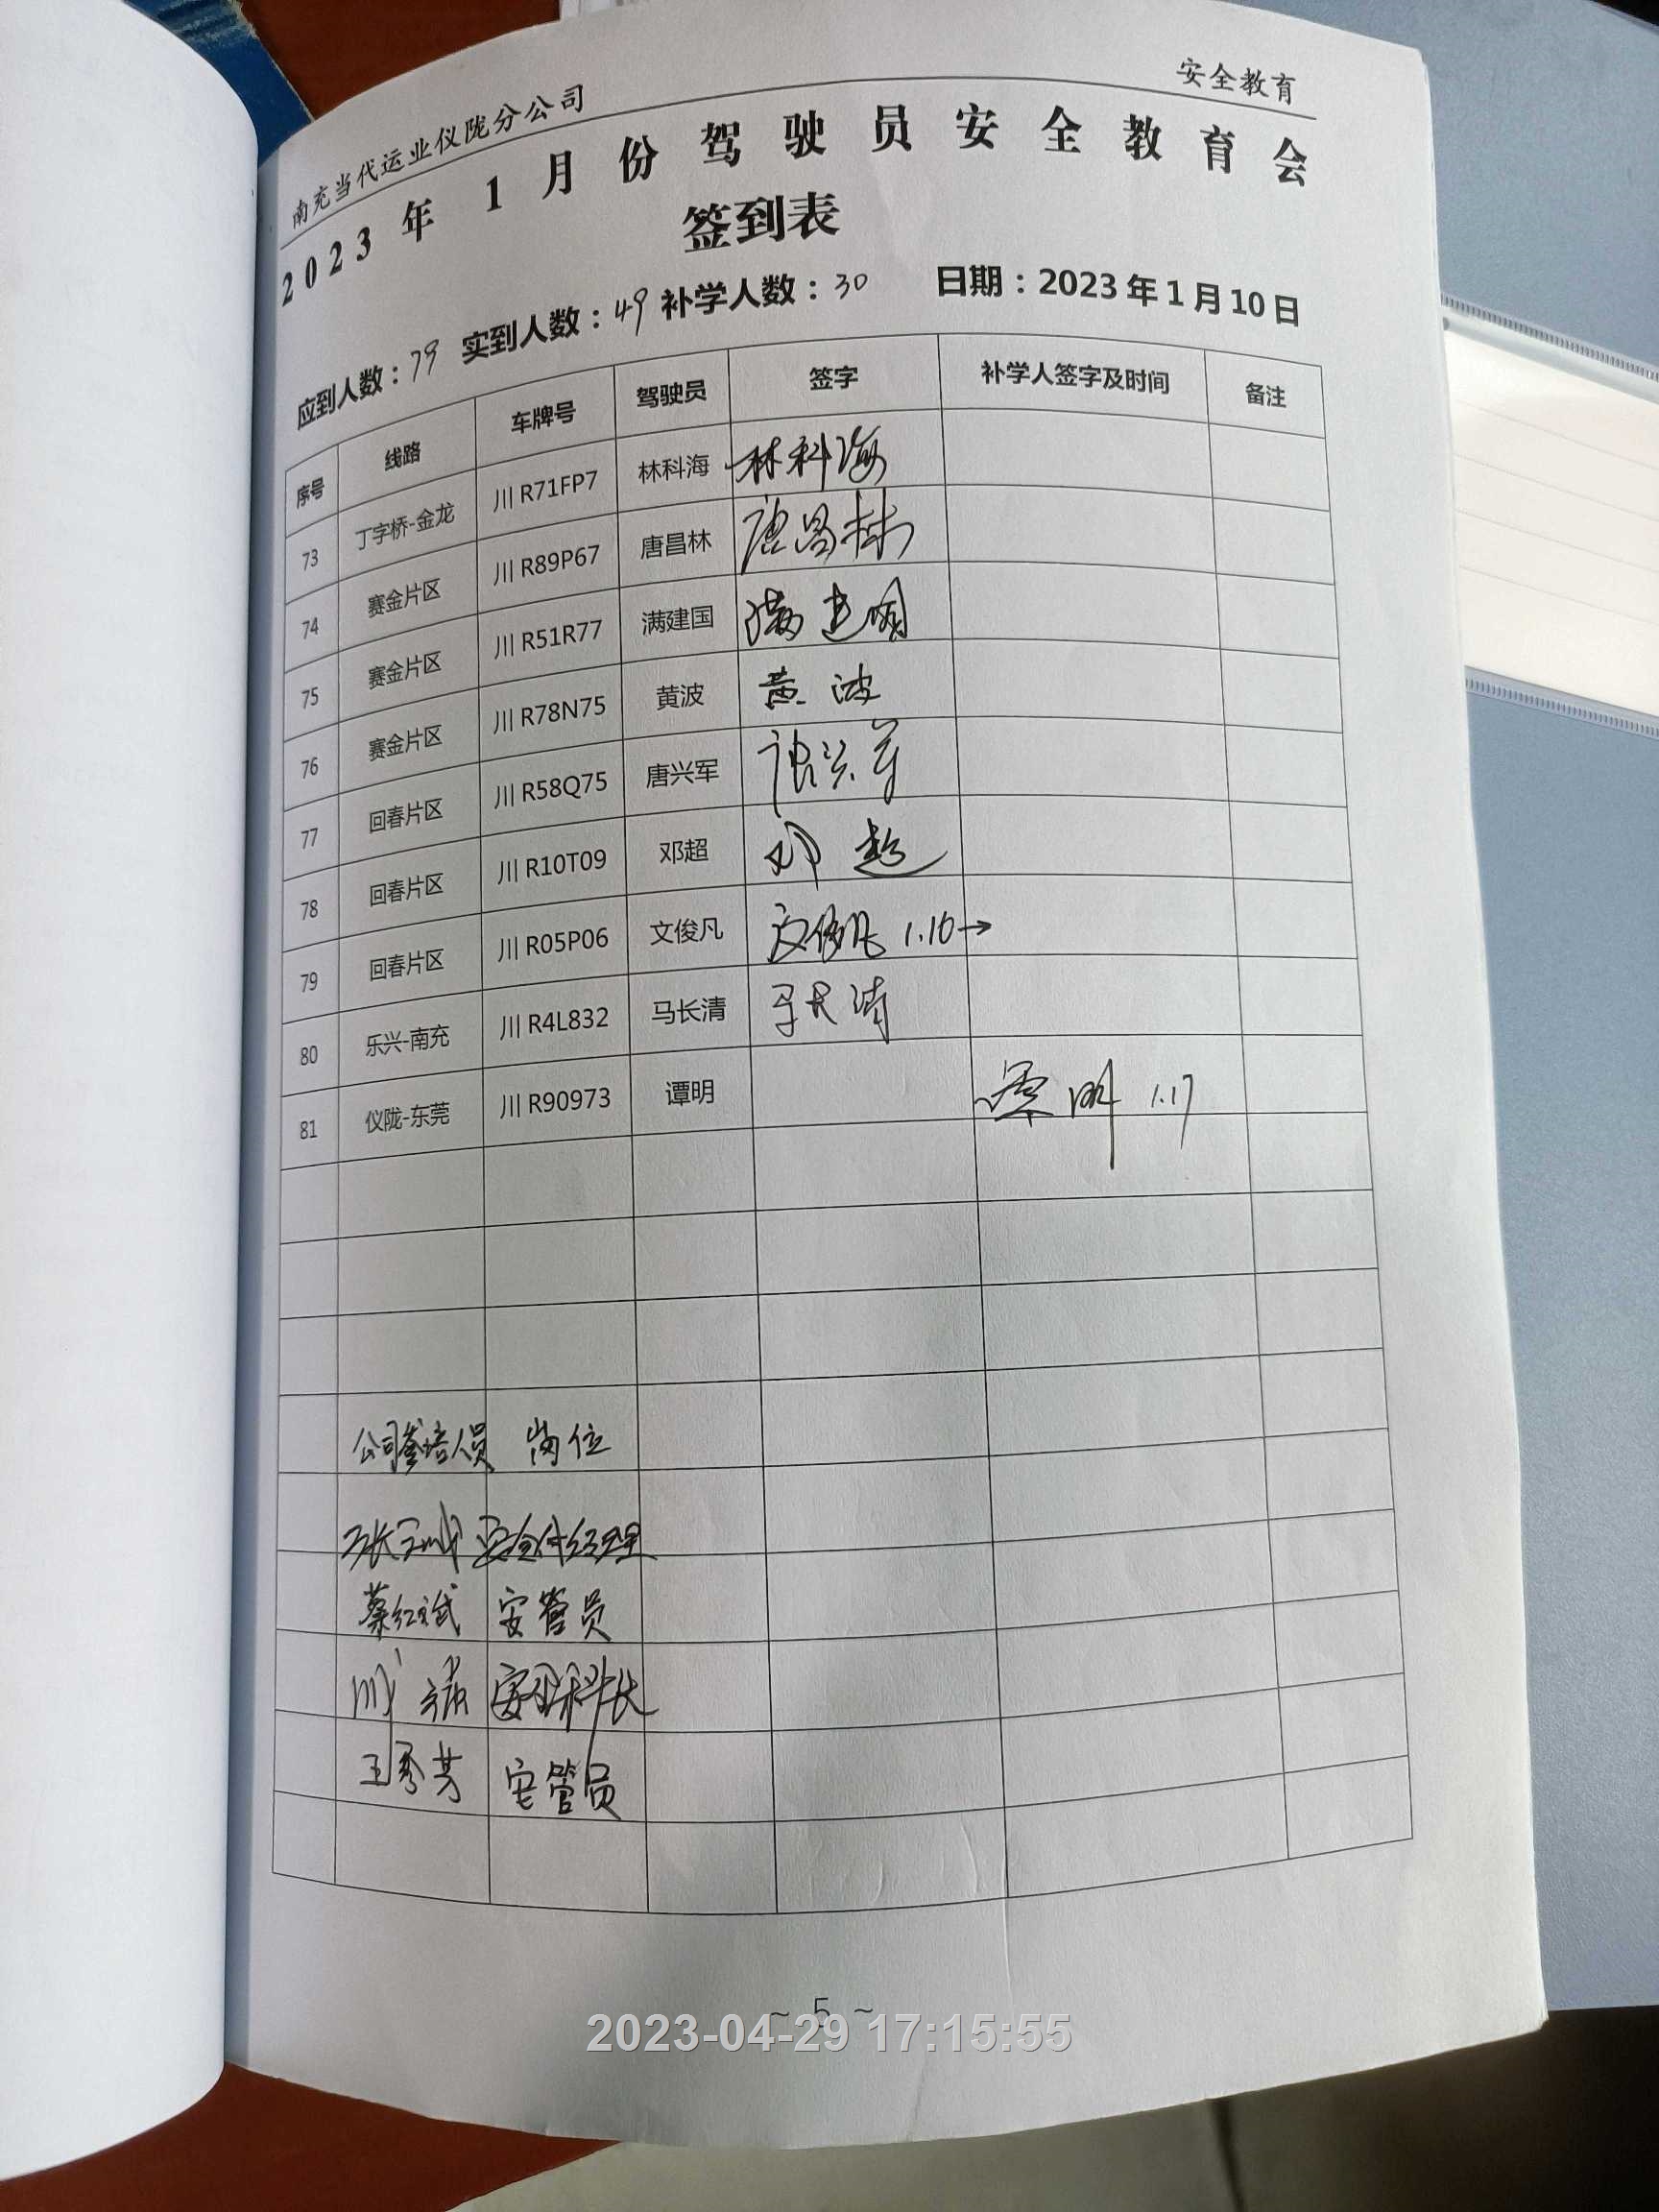 南充当代运业仪陇分公司 安全教育
2023年1月份驾驶员安全教育会
签到表
应到人数：79 实到人数：49 补学人数：30 日期：2023年1月10日
序号 线路 车牌号 驾驶员 签字 补学人签字及时间 备注
73 丁字桥-金龙 川R71FP7 林科海 林科海
74 赛金片区 川R89P67 唐昌林 唐昌林
75 赛金片区 川R51R77 满建国 满建国
76 赛金片区 川R78N75 黄波 黄波
77 回春片区 川R58Q75 唐兴军 唐兴军
78 回春片区 川R10T09 邓超 邓超
79 回春片区 川R05P06 文俊凡 文俊凡 1.10→
80 乐兴-南充 川R4L832 马长清 马长清
81 仪陇-东莞 川R90973 谭明 覃明 1.17
公司参培人员 岗位
安全付经理
蔡红斌 安管员
安全科长
王秀芳 安管员
~ 5 ~
2023-04-29 17:15:55